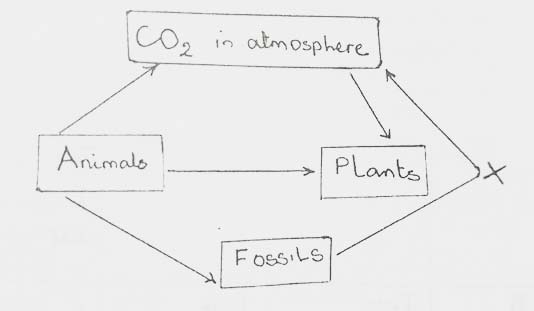 CO₂ in atmosphere
Animals
Plants
X
Fossils